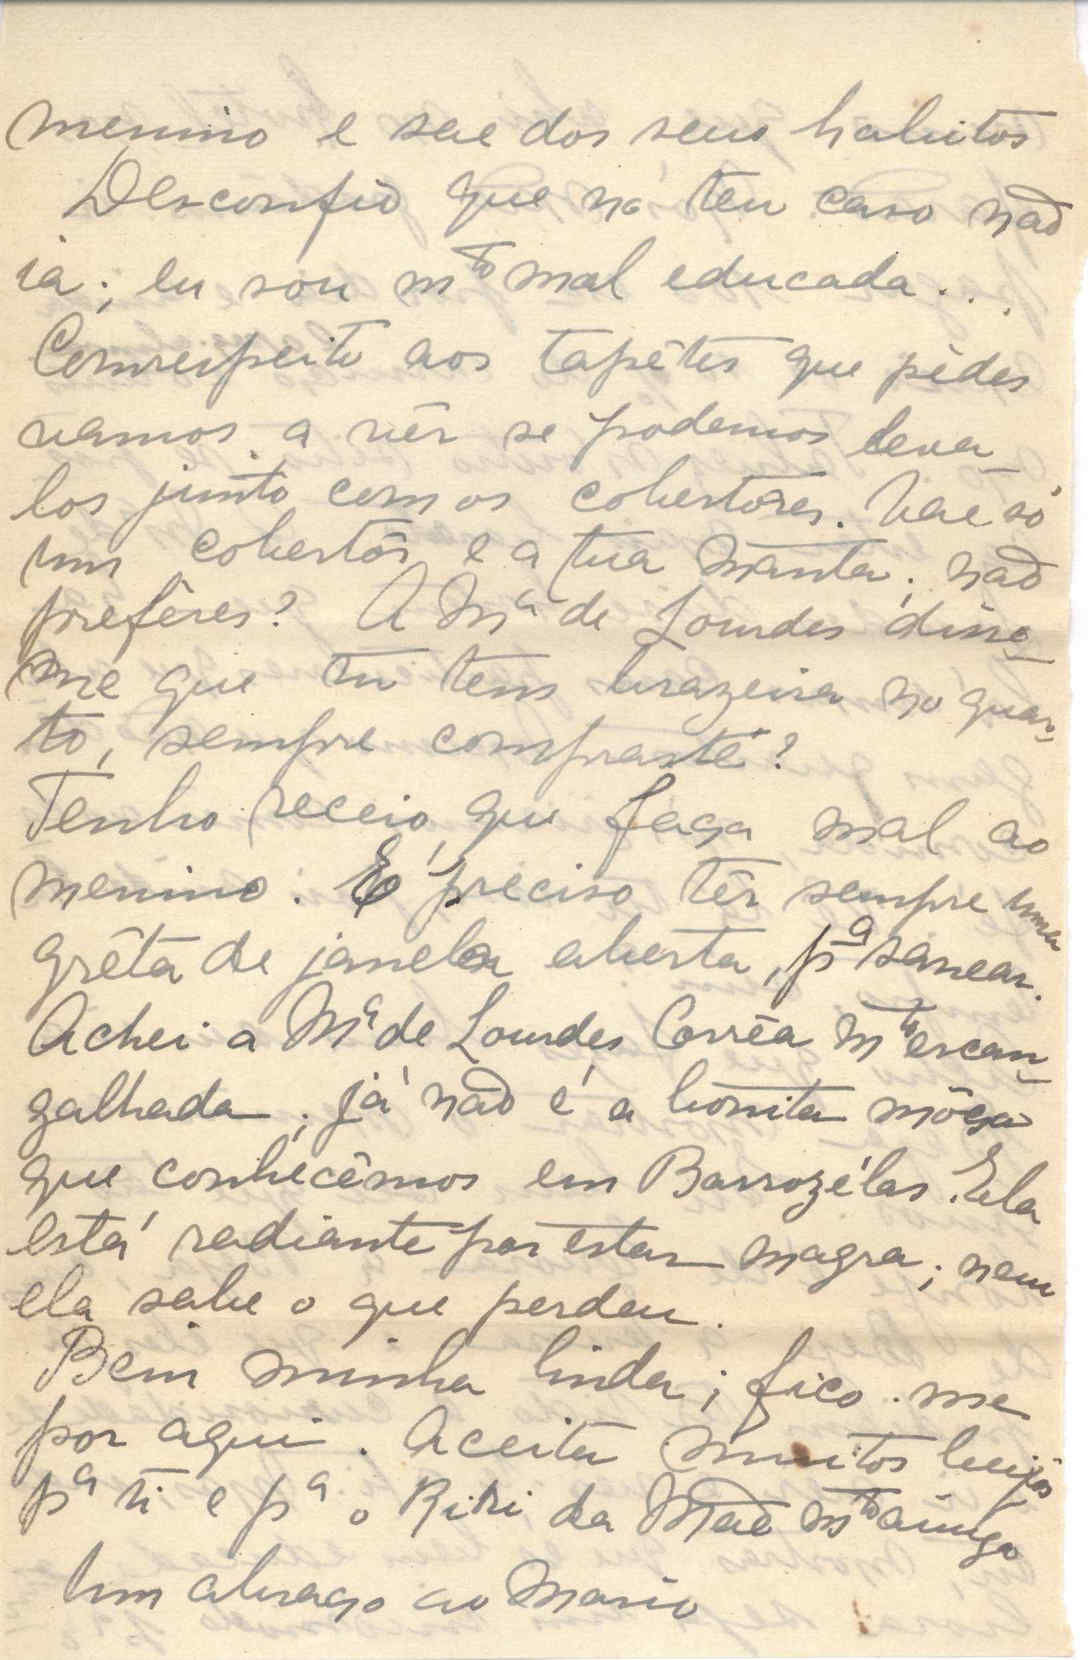 menino e sae dos seus habitos
Desconfio que no teu caso não
ia; eu sou mto mal educada...
Com respeito aos tapêtes que pédes
vamos a vêr se podemos leva-
los junto com os cobertores. Vae só
um cobertôr e a tua manta; não
preféres? A Mª de Lourdes disse-
me que tu tens brazeira no quar-
to, sempre compraste?
Tenho receio que faça mal ao
menino. É preciso têr sempre uma
grêta de janela aberta, pª sanear.
Achei a Mª de Lourdes Corrêa mto escan-
galhada; já não é a bonita môça
que conhecêmos em Barrozélas. Ela
está radiante por estar magra; nem
ela sabe o que perdeu.
Bem minha linda; fico-me
por aqui. Aceita muitos beijos
pª ti e pª o Riri da Mãe mto amiga
Um abraço ao Mario